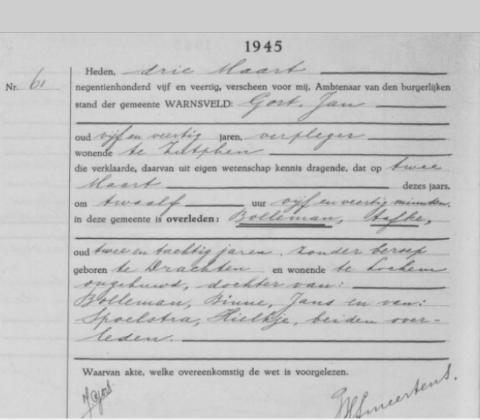 1945
Nr. 61 Heden, drie Maart
negentienhonderd vijf en veertig, verscheen voor mij, Ambtenaar van den burgerlijken
stand der gemeente WARNSVELD: Gort, Jan
oud vijf en veertig jaren, verpleger
wonende te Zutphen
die verklaarde, daarvan uit eigen wetenschap kennis dragende, dat op twee
Maart dezes jaars,
om twaalf uur vijf en veertig minuten
in deze gemeente is overleden: Bolleman, Aafke,
oud twee en tachtig jaren, zonder beroep
geboren te Drachten en wonende te Lochem
ongehuwd, dochter van:
Bolleman, Binne, Jans en van:
Spoelstra, Hieltje, beiden over-
leden.
Waarvan akte, welke overeenkomstig de wet is voorgelezen.
J Gort